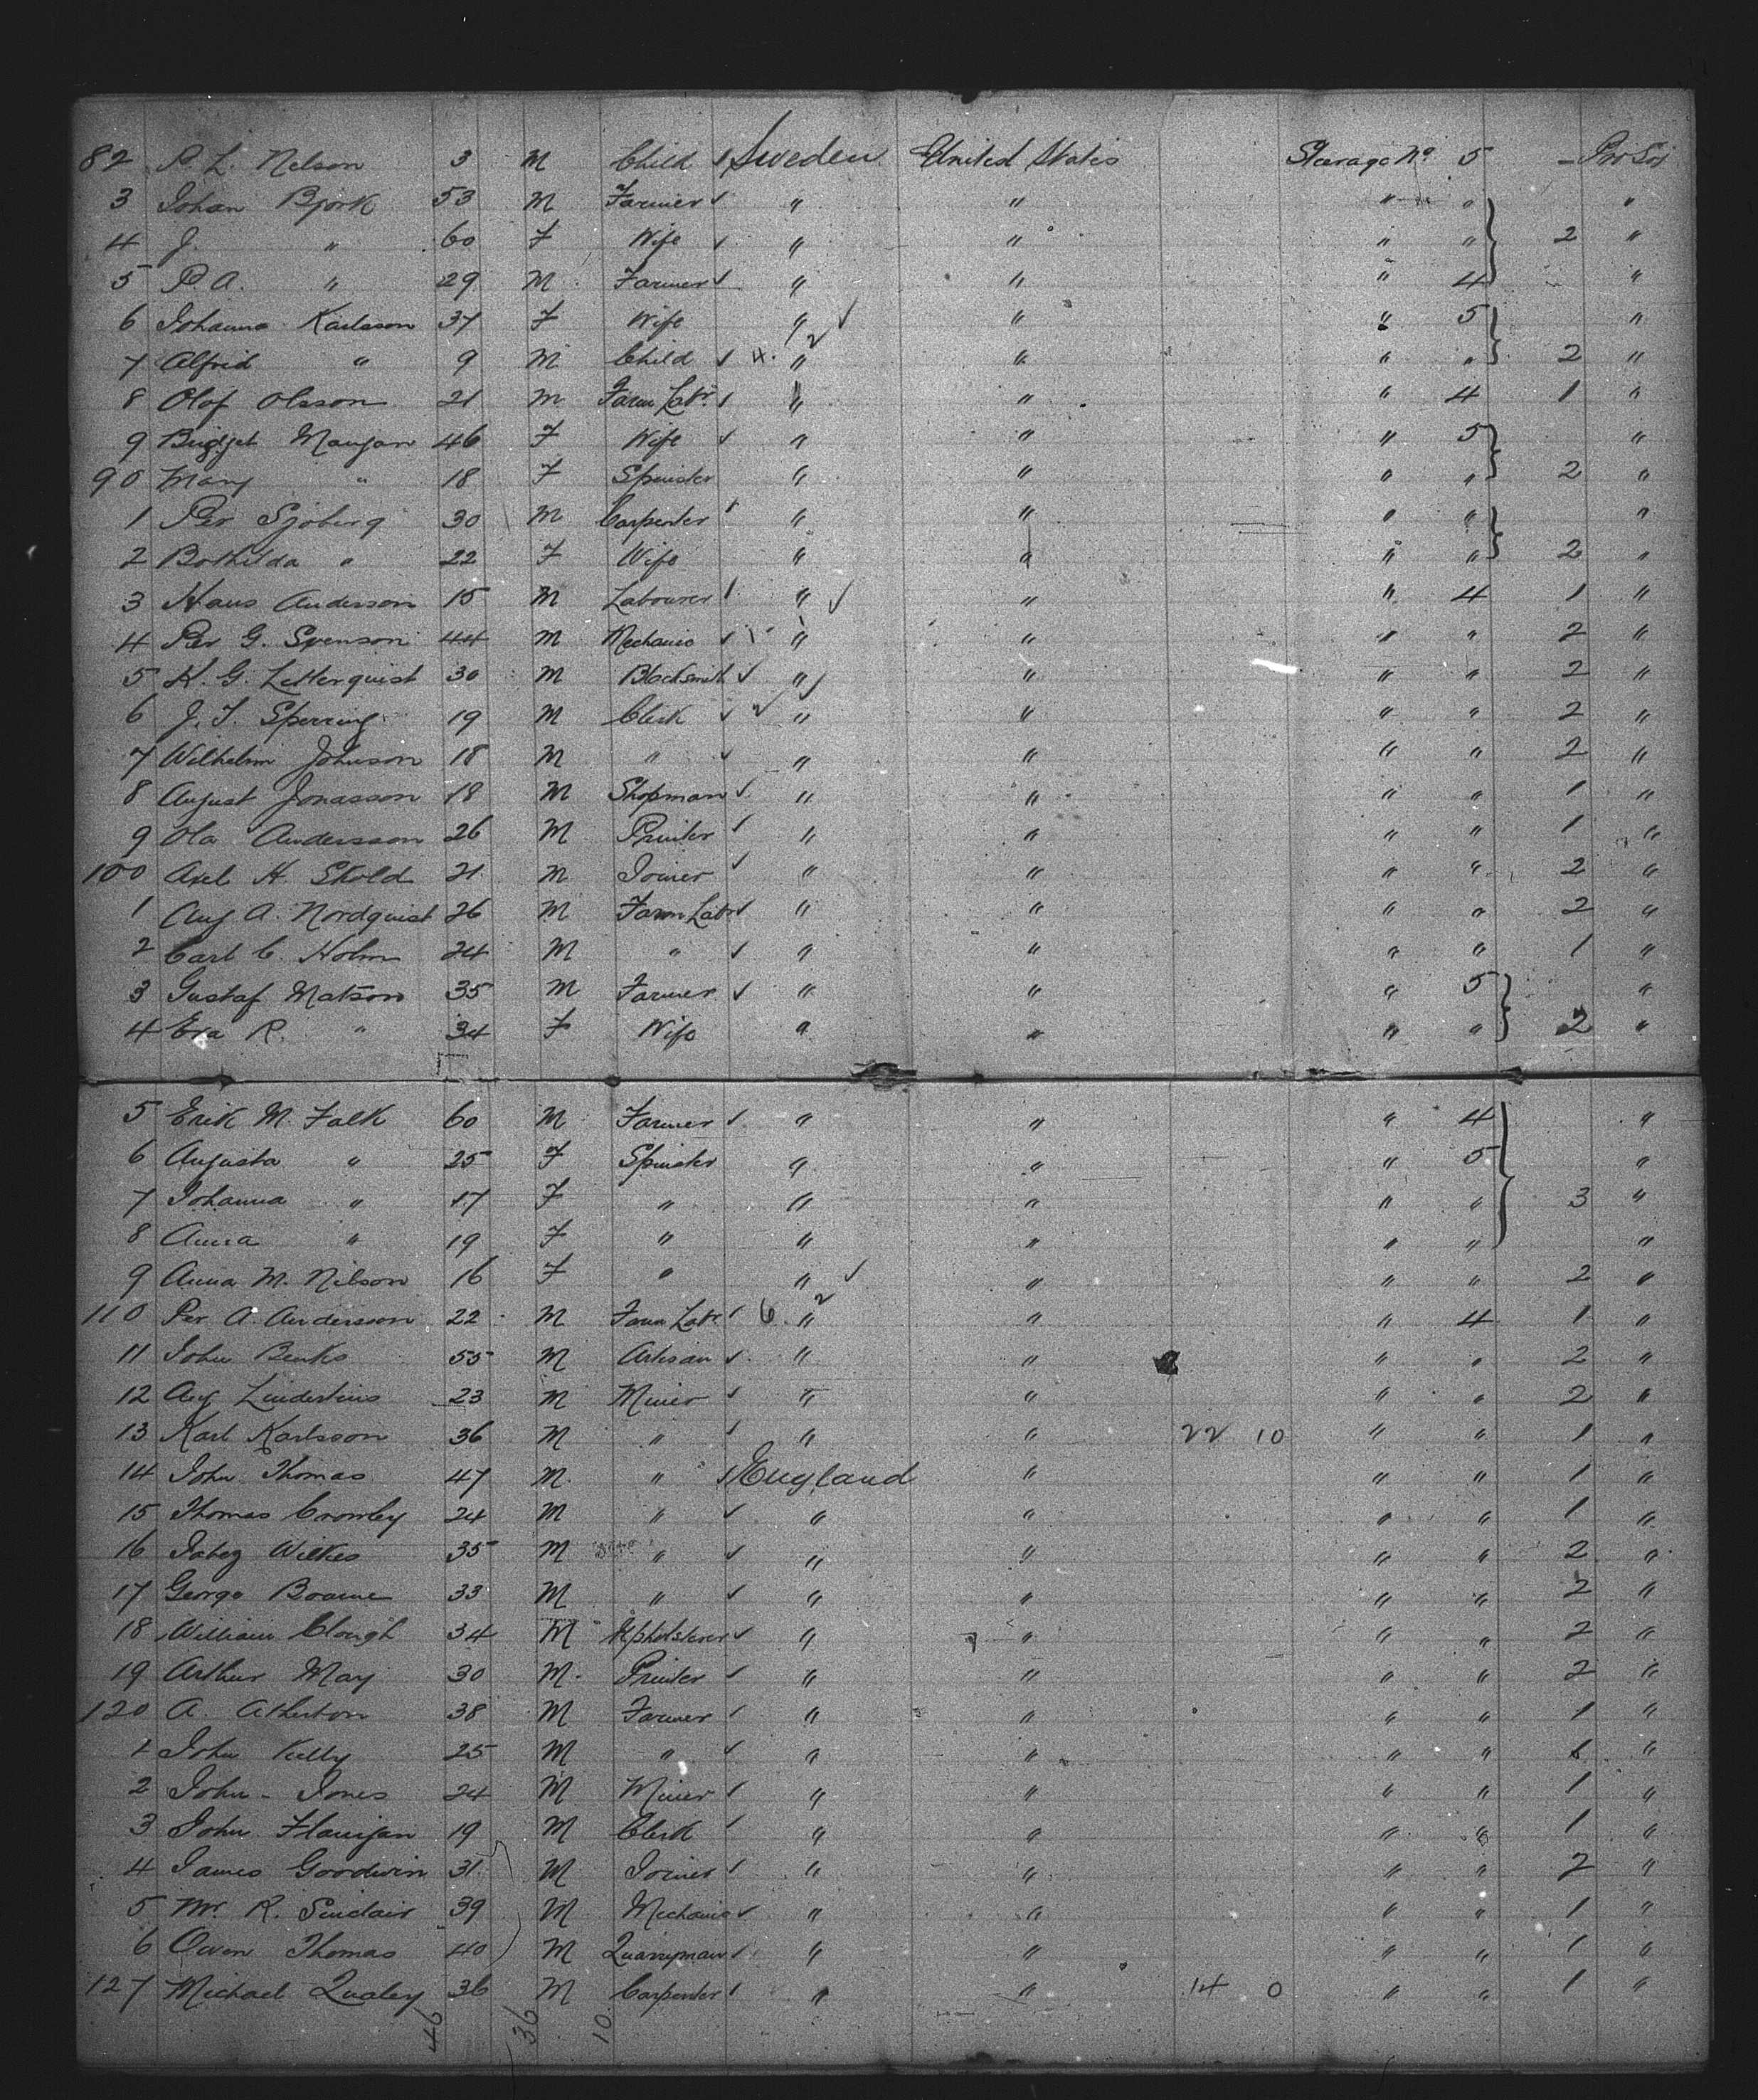 82 P. L. Nelson 3 M Child Sweden United States Steerage No 5 – Pro Soj
3 Johan Bjork 53 M Farmer " " " "  "
4 J. " 60 F Wife " " " " 2 "
5 P A. " 29 M Farmer " " " 4 "
6 Johanna Karlsson 37 F Wife " " " 5 "
7 Alfrid " 9 M Child 4. 2 " " " " 2 "
8 Olof Olsson 21 M Farm Labr " " " 4 1 "
9 Bridget Mangan 46 F Wife " " " 5 "
90 Mary " 18 F Spinster " " " " 2 "
1 Per Sjoberg 30 M Carpenter " " " " "
2 Bothilda " 22 F Wife " " " " 2 "
3 Hans Anderson 15 M Labourer " " " 4 1 "
4 Per G. Svenson 44 M Mechanic " " " " 2 "
5 K. G. Letterquist 30 M Blacksmith " " " " 2 "
6 J. T. Sperring 19 M Clerk " " " " 2 "
7 Wilhelm Johnson 18 M " " " " " 2 "
8 August Jonasson 18 M Shopman " " " " 1 "
9 Ola Andersson 26 M Printer " " " " 1 "
100 Axel H. Skold 21 M Joiner " " " " 2 "
1 Aug A. Nordquist 26 M Farm Labr " " " " 2 "
2 Carl C. Holm 24 M " " " " " 1 "
3 Gustaf Matson 35 M Farmer " " " 5 "
4 Eva R. " 34 F Wife " " " " 2 "
5 Erik M. Falk 60 M Farmer " " " 4 "
6 Augusta " 25 F Spinster " " " 5 "
7 Johanna " 17 F " " " " " 3 "
8 Anna " 19 F " " " " " "
9 Anna M. Nilson 16 F " " " " " 2 "
110 Per A. Anderson 22 M Farm Labr 6. 2 " " " 4 1 "
11 John Benks 55 M Artisan " " " " 2 "
12 Aug 23 M Miner " " " " 2 "
13 Karl Karlsson 36 M " " " 22 10 " " 1 "
14 John Thomas 47 M " England " " " 1 "
15 Thomas Crowley 24 M " " " " " 1 "
16 Jabez Wilkes 35 M " " " " " 2 "
17 George Bourne 33 M " " " " " 2 "
18 William Clough 34 M Upholsterer " " " " 2 "
19 Arthur May 30 M Printer " " " " 2 "
120 A. Atherton 38 M Farmer " " " " 1 "
1 John Kelly 25 M " " " " " 1 "
2 John Jones 24 M Miner " " " " 1 "
3 John Flanigan 19 M Clerk " " " " 1 "
4 James Goodwin 31 M Joiner " " " " 2 "
5 Mr. R. Sinclair 39 M Mechanic " " " " 1 "
6 Owen Thomas 40 M Quarryman " " " " 1 "
127 Michael Qualey 36 M Carpenter " " 14 0 " " 1 "
46 36 10